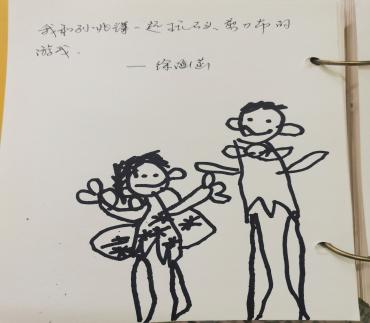 我和孙兆谦一起玩石头、剪刀布的
游戏.
—— 徐